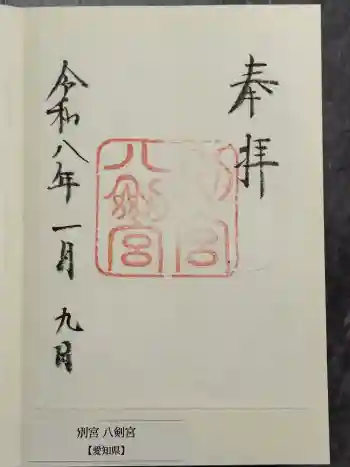 奉拝
別宮
八剣宮
令和八年一月九日
別宮 八剣宮
【愛知県】